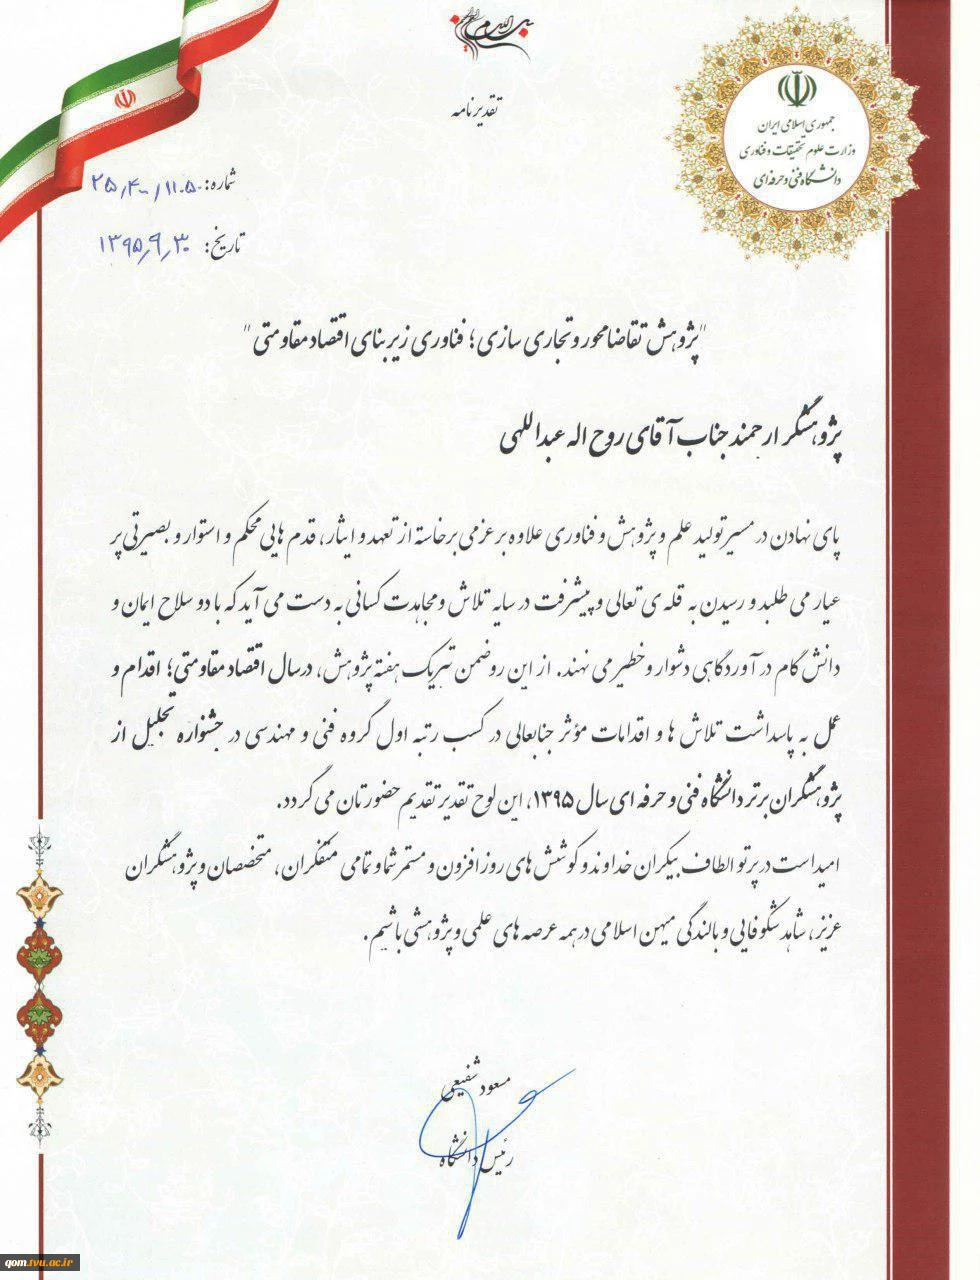 بسم الله الرحمن الرحیم
تقدیرنامه
جمهوری اسلامی ایران
وزارت علوم تحقیقات و فناوری
دانشگاه فنی و حرفه‌ای
شماره: ۲۵/۴۰۰/۱۱۰۵۰
تاریخ: ۱۳۹۵/۹/۳۰
"پژوهش تقاضامحور و تجاری سازی؛ فناوری زیربنای اقتصاد مقاومتی"
پژوهشگر ارجمند جناب آقای روح اله عبداللهی
پای نهادن در مسیر تولید علم و پژوهش و فناوری علاوه بر عزمی برخاسته از تعهد و ایثار، قدم هایی محکم و استوار و بصیرتی پر
عیار می طلبد و رسیدن به قله ی تعالی و پیشرفت در سایه تلاش و مجاهدت کسانی به دست می آید که با دو سلاح ایمان و
دانش گام در آوردگاهی دشوار و خطیر می نهند. از این رو ضمن تبریک هفته پژوهش، در سال اقتصاد مقاومتی؛ اقدام و
عمل به پاسداشت تلاش ها و اقدامات مؤثر جنابعالی در کسب رتبه اول گروه فنی و مهندسی در جشنواره تجلیل از
پژوهشگران برتر دانشگاه فنی و حرفه ای سال ۱۳۹۵، این لوح تقدیر تقدیم حضورتان می گردد.
امید است در پرتو الطاف بیکران خداوند و کوشش های روزافزون و مستمر شما و تمامی متفکران، متخصصان و پژوهشگران
عزیز، شاهد شکوفایی و بالندگی میهن اسلامی در همه عرصه های علمی و پژوهشی باشیم.
مسعود شفیعی
رئیس دانشگاه
qom.tvu.ac.ir